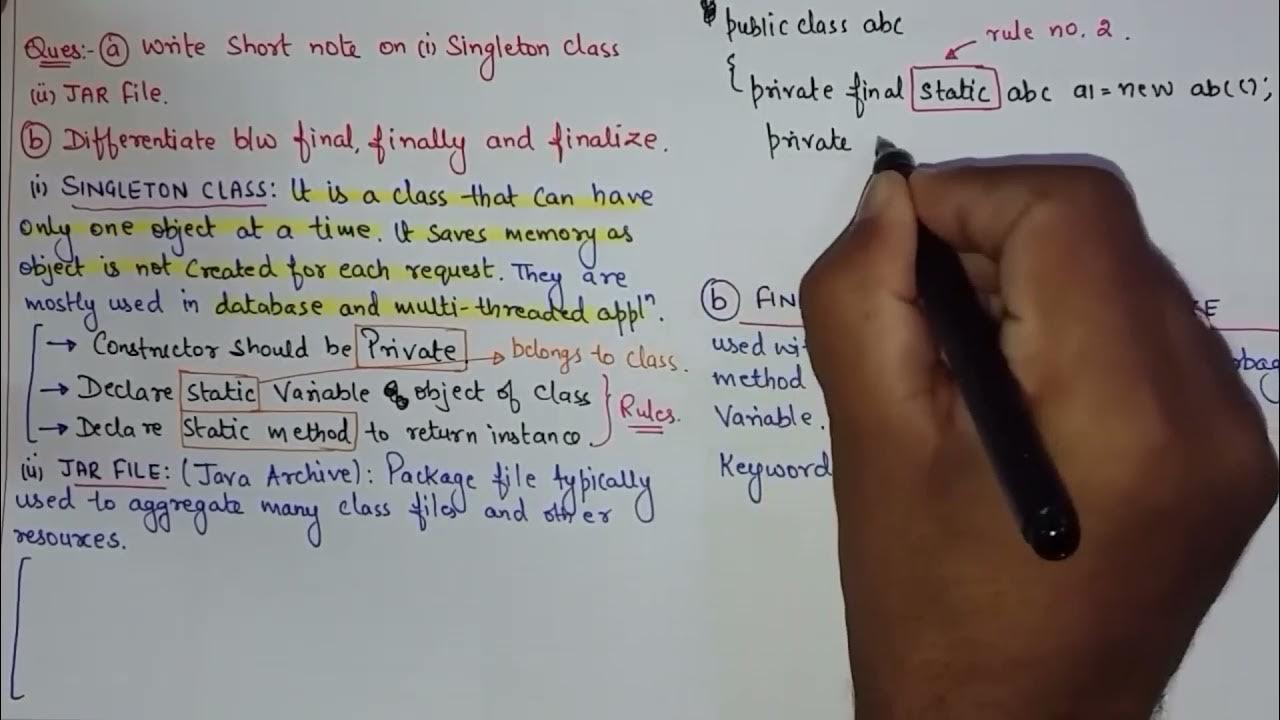 Ques:- (a) Write Short note on (i) Singleton class
(ii) JAR File.
(b) Differentiate b/w final, finally and finalize.
(i) SINGLETON CLASS: It is a class that can have
only one object at a time. It saves memory as
object is not created for each request. They are
mostly used in database and multi-threaded applⁿ.
→ Constructor should be Private → belongs to class.
→ Declare static Variable object of class
→ Declare static method to return instance.
Rules.
(ii) JAR FILE: (Java Archive): Package file typically
used to aggregate many class files and other
resources.
public class abc
rule no. 2.
{ private final static abc a1 = new abc();
private
(b)
used
method
Variable.
Keyword